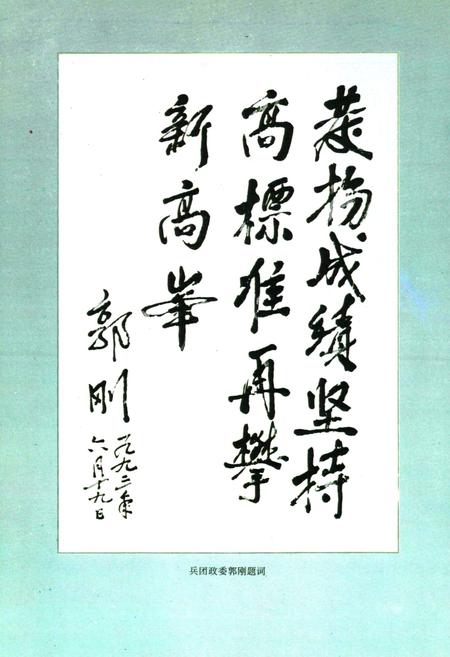 发扬成绩坚持
高標准再攀
新高峯
郭刚
一九九二年
六月十九日
兵团政委郭刚题词